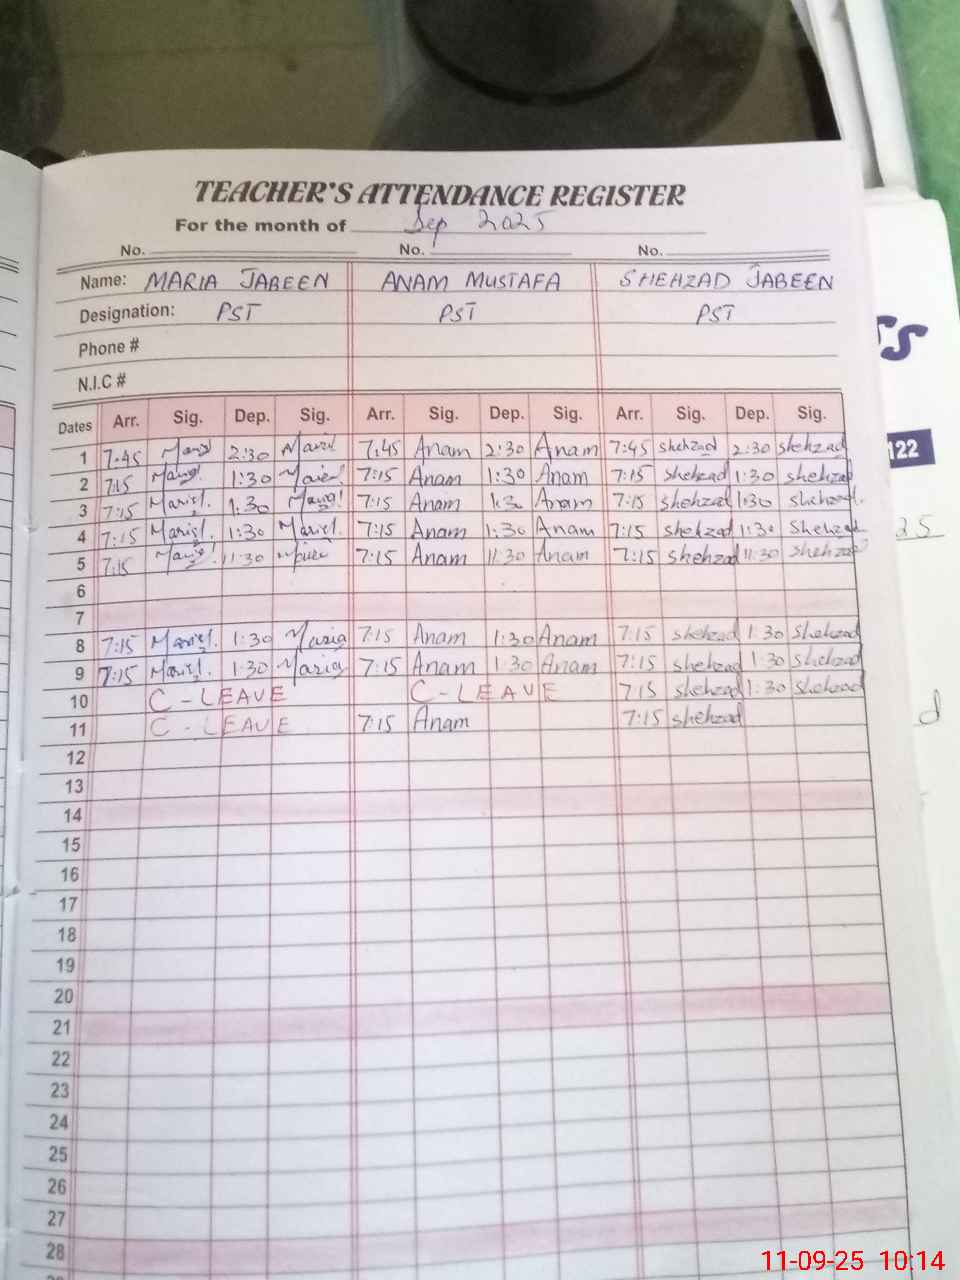 TEACHER'S ATTENDANCE REGISTER
For the month of Sep 2025
No. No. No.
Name: MARIA JABEEN ANAM MUSTAFA SHEHZAD JABEEN
Designation: PST PST PST
Phone #
N.I.C #
Dates Arr. Sig. Dep. Sig. Arr. Sig. Dep. Sig. Arr. Sig. Dep. Sig.
1 7:45 2:30 7:45 Anam 2:30 Anam 7:45 shehzad 2:30 shehzad
2 7:15 1:30 7:15 Anam 1:30 Anam 7:15 shehzad 1:30 shehzad
3 7:15 1:30 7:15 Anam 1:30 Anam 7:15 shehzad 1:30 shehzad
4 7:15 1:30 7:15 Anam 1:30 Anam 7:15 shehzad 1:30 Shehzad
5 7:15 11:30 7:15 Anam 11:30 Anam 7:15 shehzad 11:30 shehzad
6
7
8 7:15 1:30 Maria 7:15 Anam 1:30 Anam 7:15 shehzad 1:30 shehzad
9 7:15 1:30 Maria 7:15 Anam 1:30 Anam 7:15 shehzad 1:30 shehzad
10 C-LEAVE C-LEAVE 7:15 shehzad 1:30 shehzad
11 C-LEAVE 7:15 Anam 7:15 shehzad
12
13
14
15
16
17
18
19
20
21
22
23
24
25
26
27
28
122
25
d
11-09-25 10:14